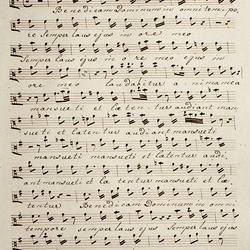 Benedicam Dominum in omni tempo
re semper laus ejus in ore meo
semper laus ejus in o re meo ejus in
ore meo laudabitur a nima mea
mansueti et læ ten tur audiant man
sueti et lætentur audiant mansueti
mansueti mansueti et lætentur audi
ant mansueti et lætentur mansueti et læ
tentur Benedicam Dominum in omni
tempore semper laus ejus semper laus